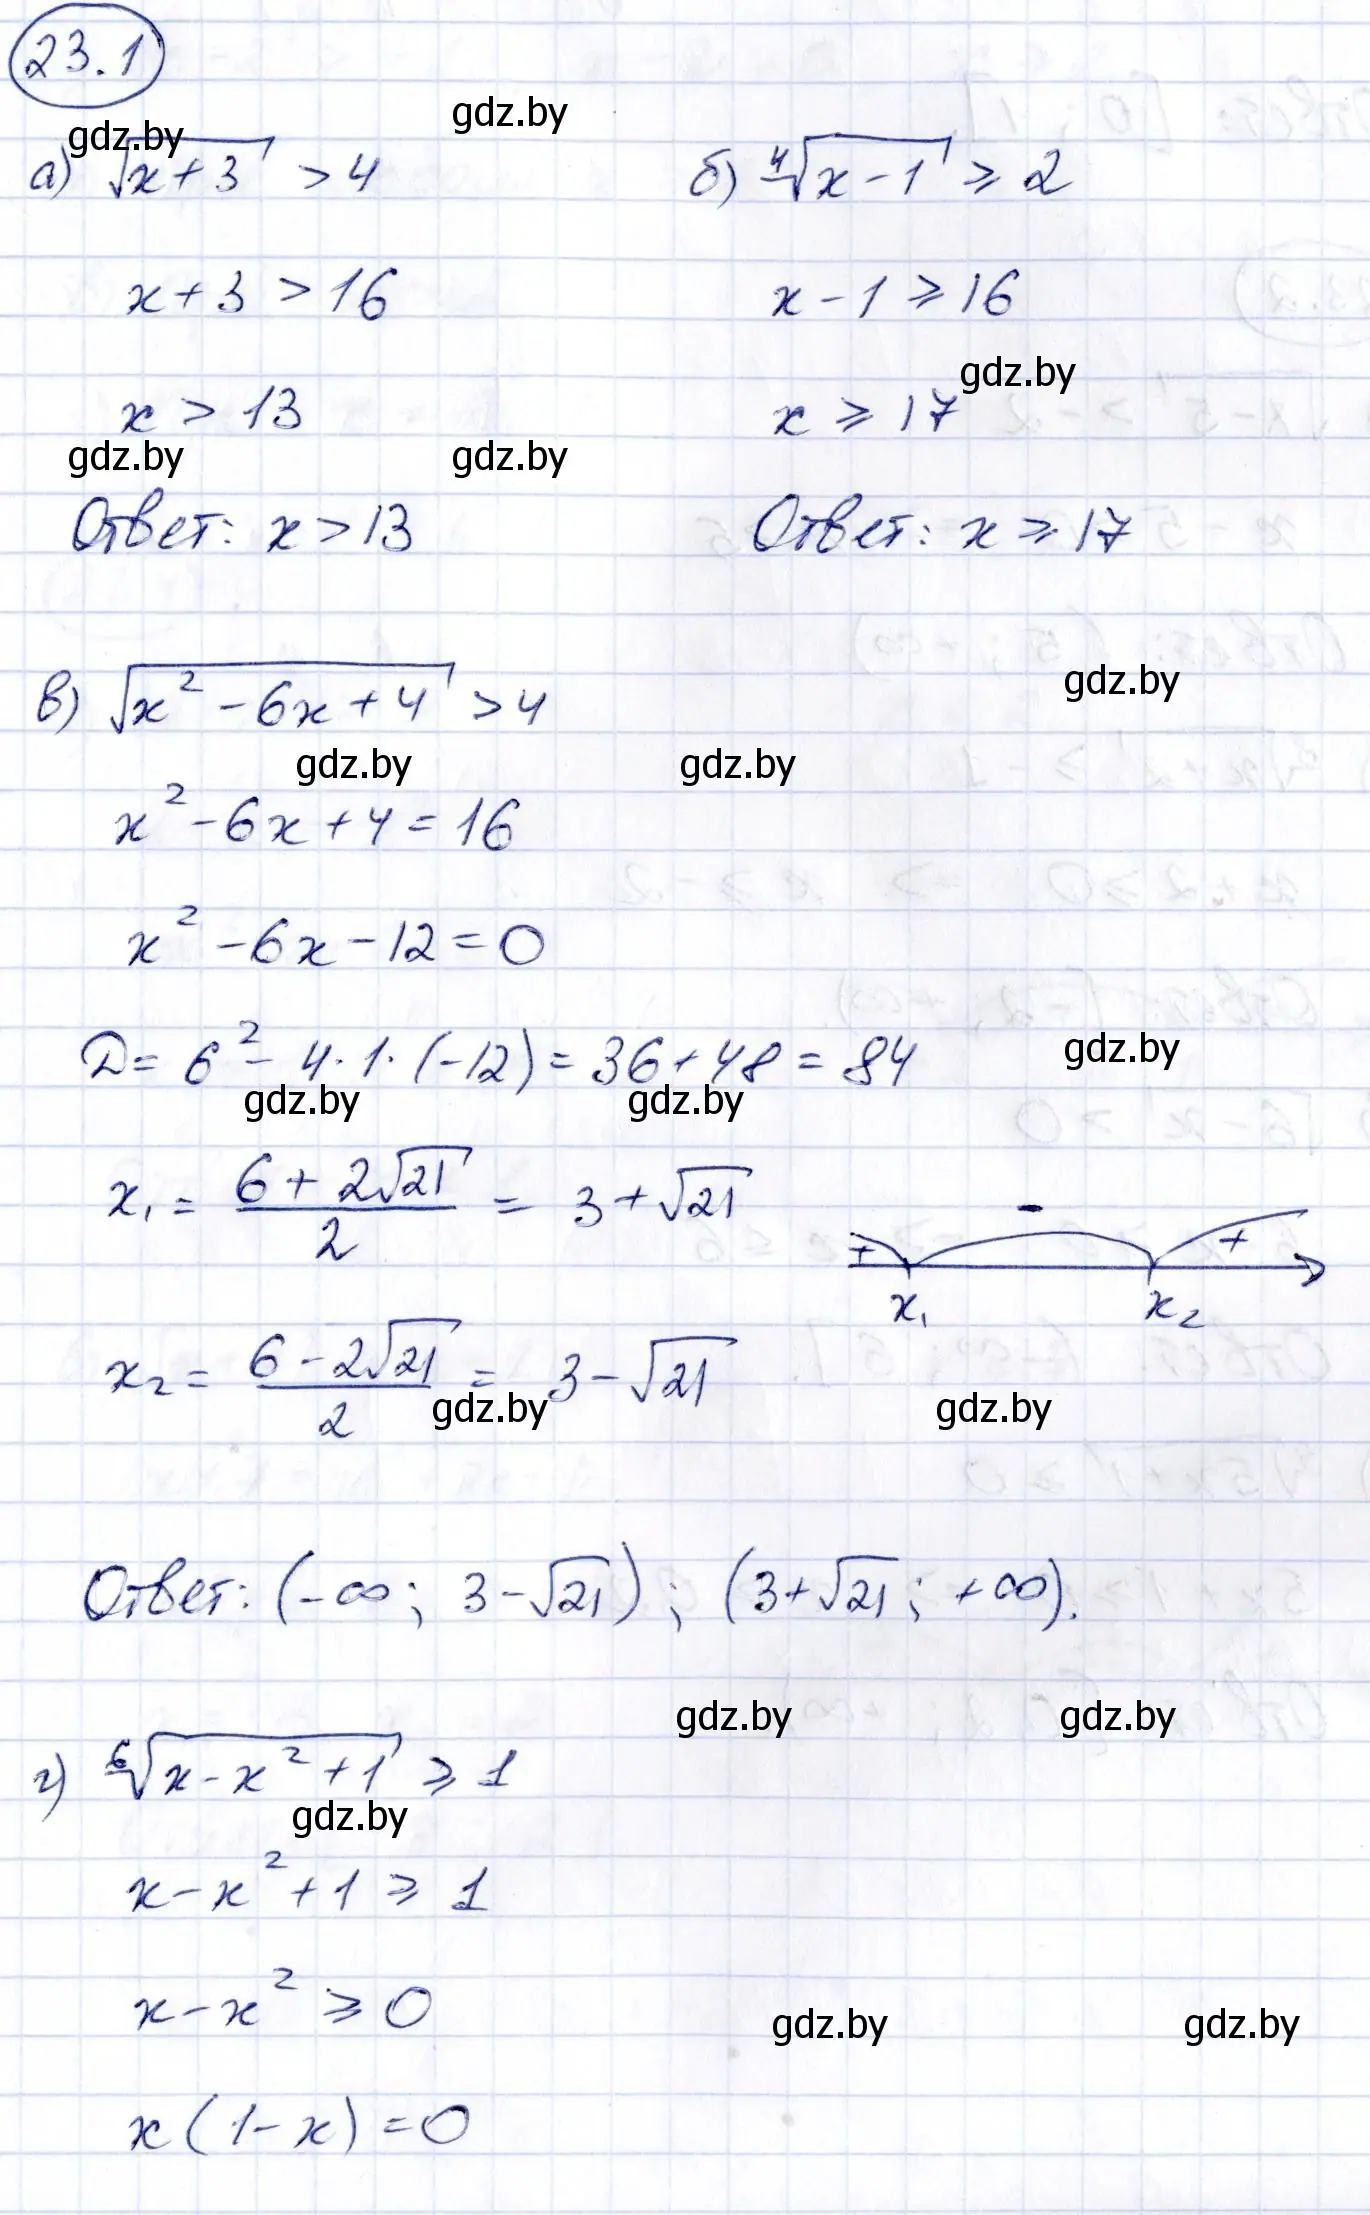 23.1
gdz.by
gdz.by
а) √(x+3) > 4
б) ⁴√(x-1) ⩾ 2
x+3 > 16
x-1 ⩾ 16
gdz.by
x > 13
x ⩾ 17
gdz.by
gdz.by
Ответ: x > 13
Ответ: x ⩾ 17
gdz.by
в) √(x² - 6x + 4) > 4
gdz.by
gdz.by
x² - 6x + 4 = 16
x² - 6x - 12 = 0
D = 6² - 4·1·(-12) = 36 + 48 = 84
gdz.by
gdz.by
gdz.by
x₁ = (6 + 2√21)/2 = 3 + √21
+ - +
x₁ x₂
x₂ = (6 - 2√21)/2 = 3 - √21
gdz.by
gdz.by
Ответ: (-∞; 3-√21); (3+√21; +∞).
gdz.by
gdz.by
г) ⁶√(x - x² + 1) ⩾ 1
gdz.by
x - x² + 1 ⩾ 1
x - x² ⩾ 0
gdz.by
gdz.by
x(1-x) = 0